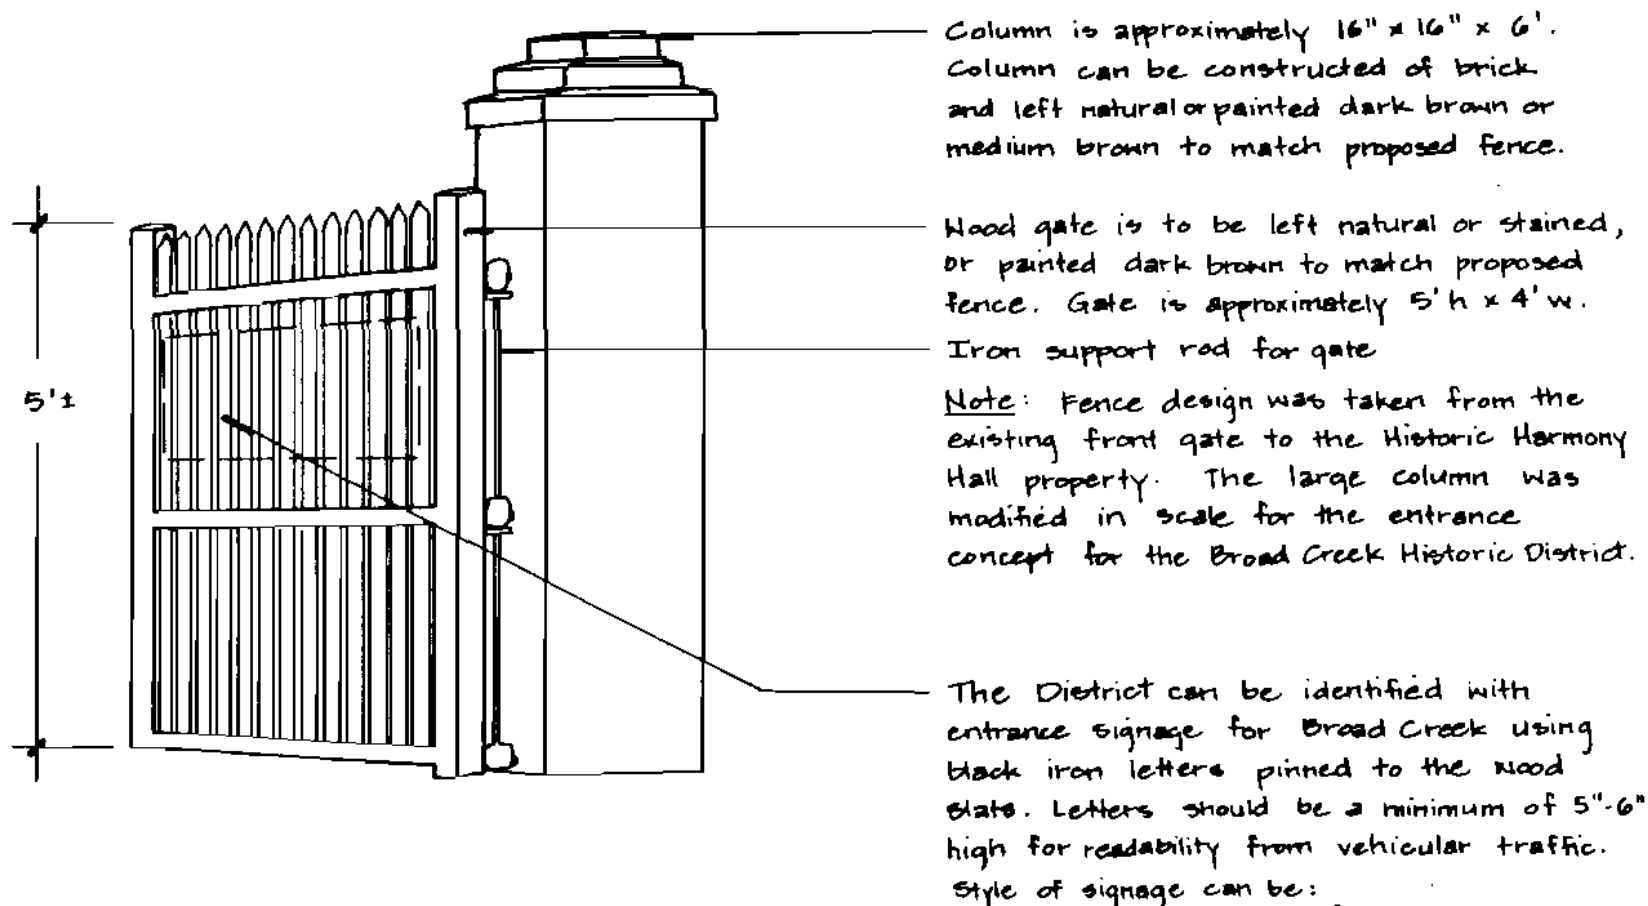 Column is approximately 16" x 16" x 6'.
Column can be constructed of brick
and left natural or painted dark brown or
medium brown to match proposed fence.
Wood gate is to be left natural or stained,
or painted dark brown to match proposed
fence. Gate is approximately 5'h x 4'w.
Iron support rod for gate
5'±
Note: Fence design was taken from the
existing front gate to the Historic Harmony
Hall property. The large column was
modified in scale for the entrance
concept for the Broad Creek Historic District.
The District can be identified with
entrance signage for Broad Creek using
black iron letters pinned to the wood
slats. Letters should be a minimum of 5"-6"
high for readability from vehicular traffic.
Style of signage can be: